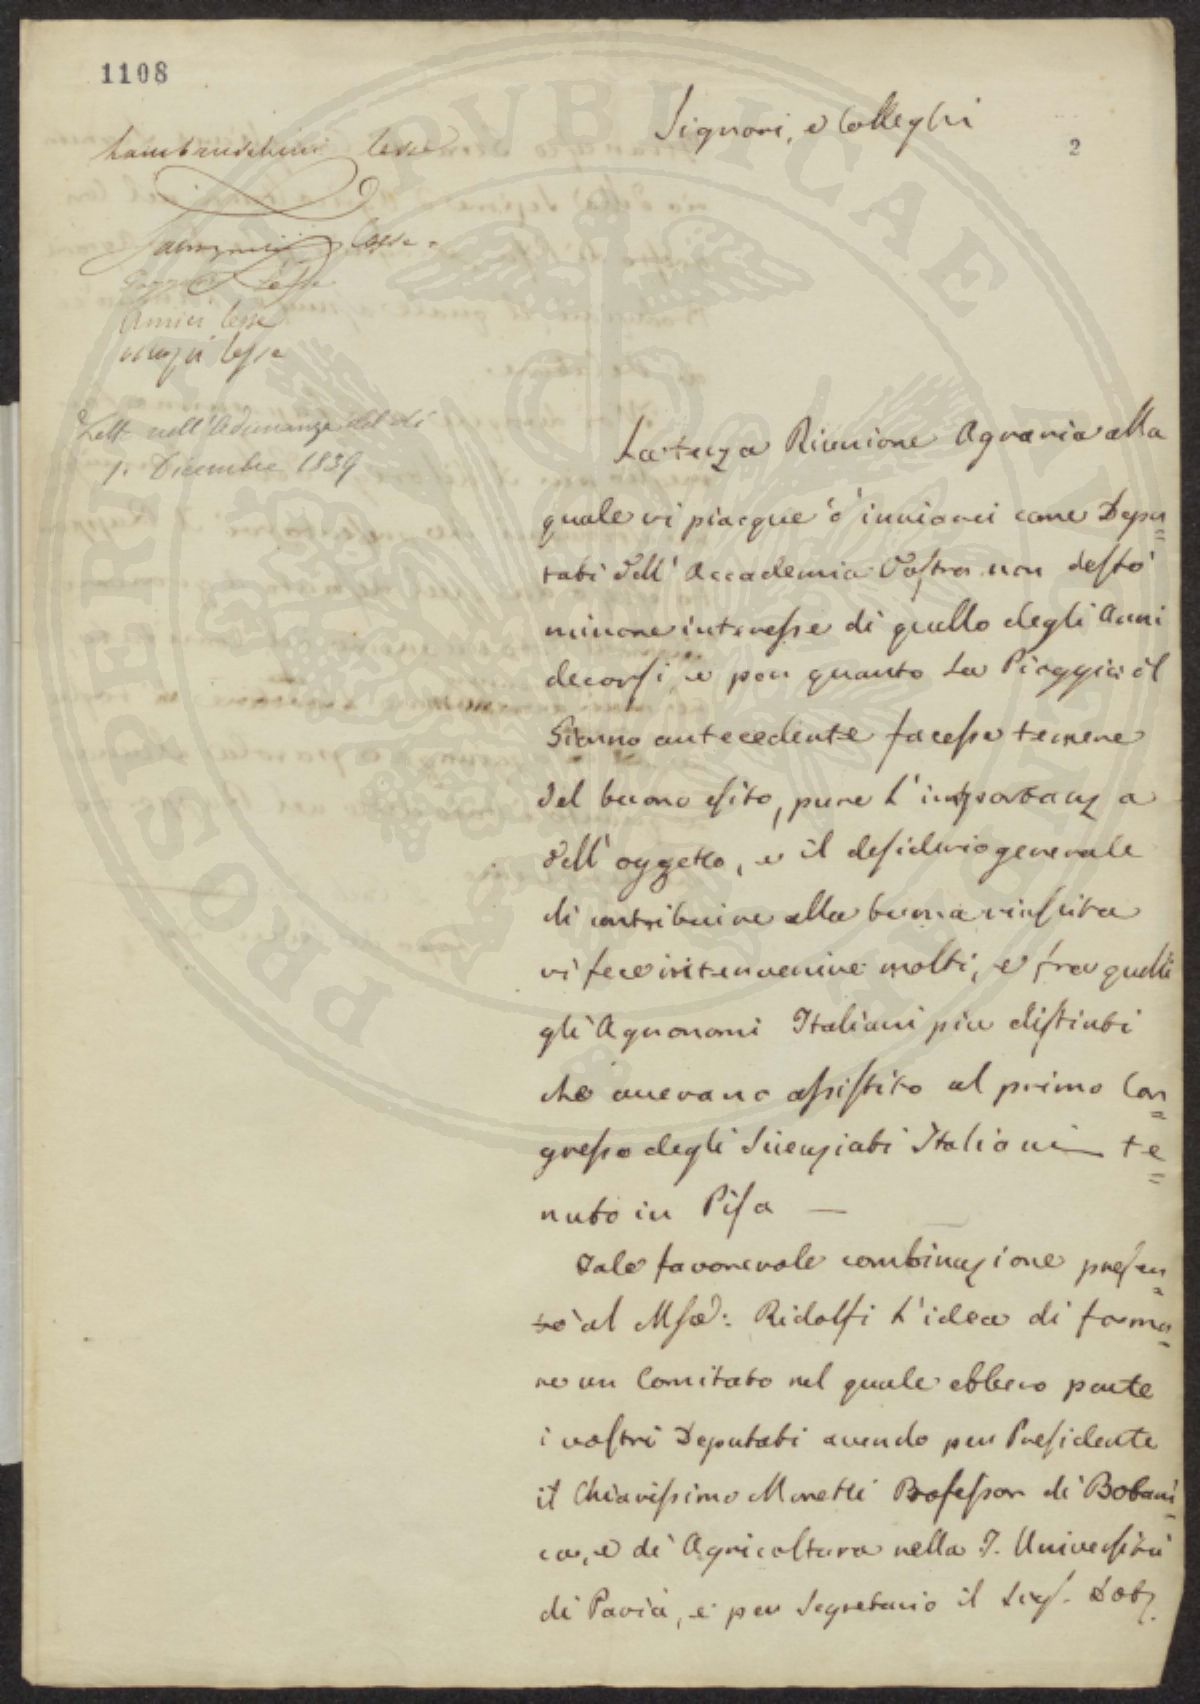 1108
Signori, e Colleghi
2
Lambruschini lesse
lesse
lesse
Amici lesse
lesse
Lett. nell'Adunanza del dì
1. Dicembre 1839
La terza Riunione Agraria alla
quale vi piacque d'inviarci come Depu=
tati dell' Accademia Vostra non destò
minore interesse di quello degli Anni
decorsi, e per quanto la Pioggia il
Giorno antecedente facesse temere
del buono esito, pure l'importanza
dell' oggetto, e il desiderio generale
di contribuire alla buona riuscita
vi fece intervenire molti, e fra quelli
gli Agronomi Italiani piu distinti
che avevano assistito al primo Con=
gresso degli Scienziati Italiani te=
nuto in Pisa —
Tale favorevole combinazione presen=
tò al Mse: Ridolfi l'idea di forma=
re un Comitato nel quale ebbero parte
i vostri Deputati avendo per Presidente
il Chiarissimo Moretti Professor di Botani=
ca, e di Agricoltura nella I. Università
di Pavia, e per Segretario il Sig. Dott.
PROSPERITATI PUBLICAE AUGENDAE